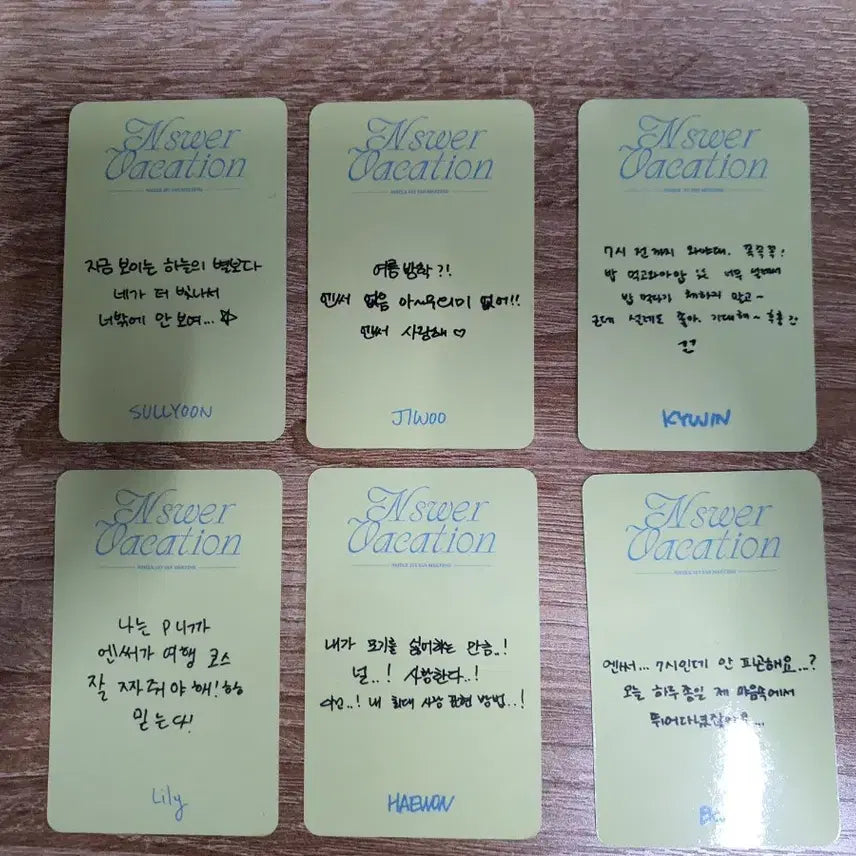 NSWER
Vacation
지금 보이는 하늘의 별보다
네가 더 빛나서
너밖에 안 보여... ☆
SULLYOON
NSWER
Vacation
여름방학?!
엔써 없음 아~무 의미 없어!!
엔써 사랑해 ♡
JIWOO
NSWER
Vacation
7시 전까지 와야대. 꼭꼭꼭!
밥 먹고와아압 너무 설레서
밥 먹다가 체하지 말고~
근데 설레도 좋아. 기대해~ 후훗
KYUJIN
NSWER
Vacation
나는 P니까
엔써가 여행 코스
잘 짜줘야 해!
믿는다!
Lily
NSWER
Vacation
내가 모기를 싫어하는 만큼..!
널..! 사랑한다..!
내 최대 사랑 표현 방법..!
HAEWON
NSWER
Vacation
엔써... 7시인데 안 피곤해요...?
오늘 하루종일 제 마음속에서
뛰어다녔잖아요...